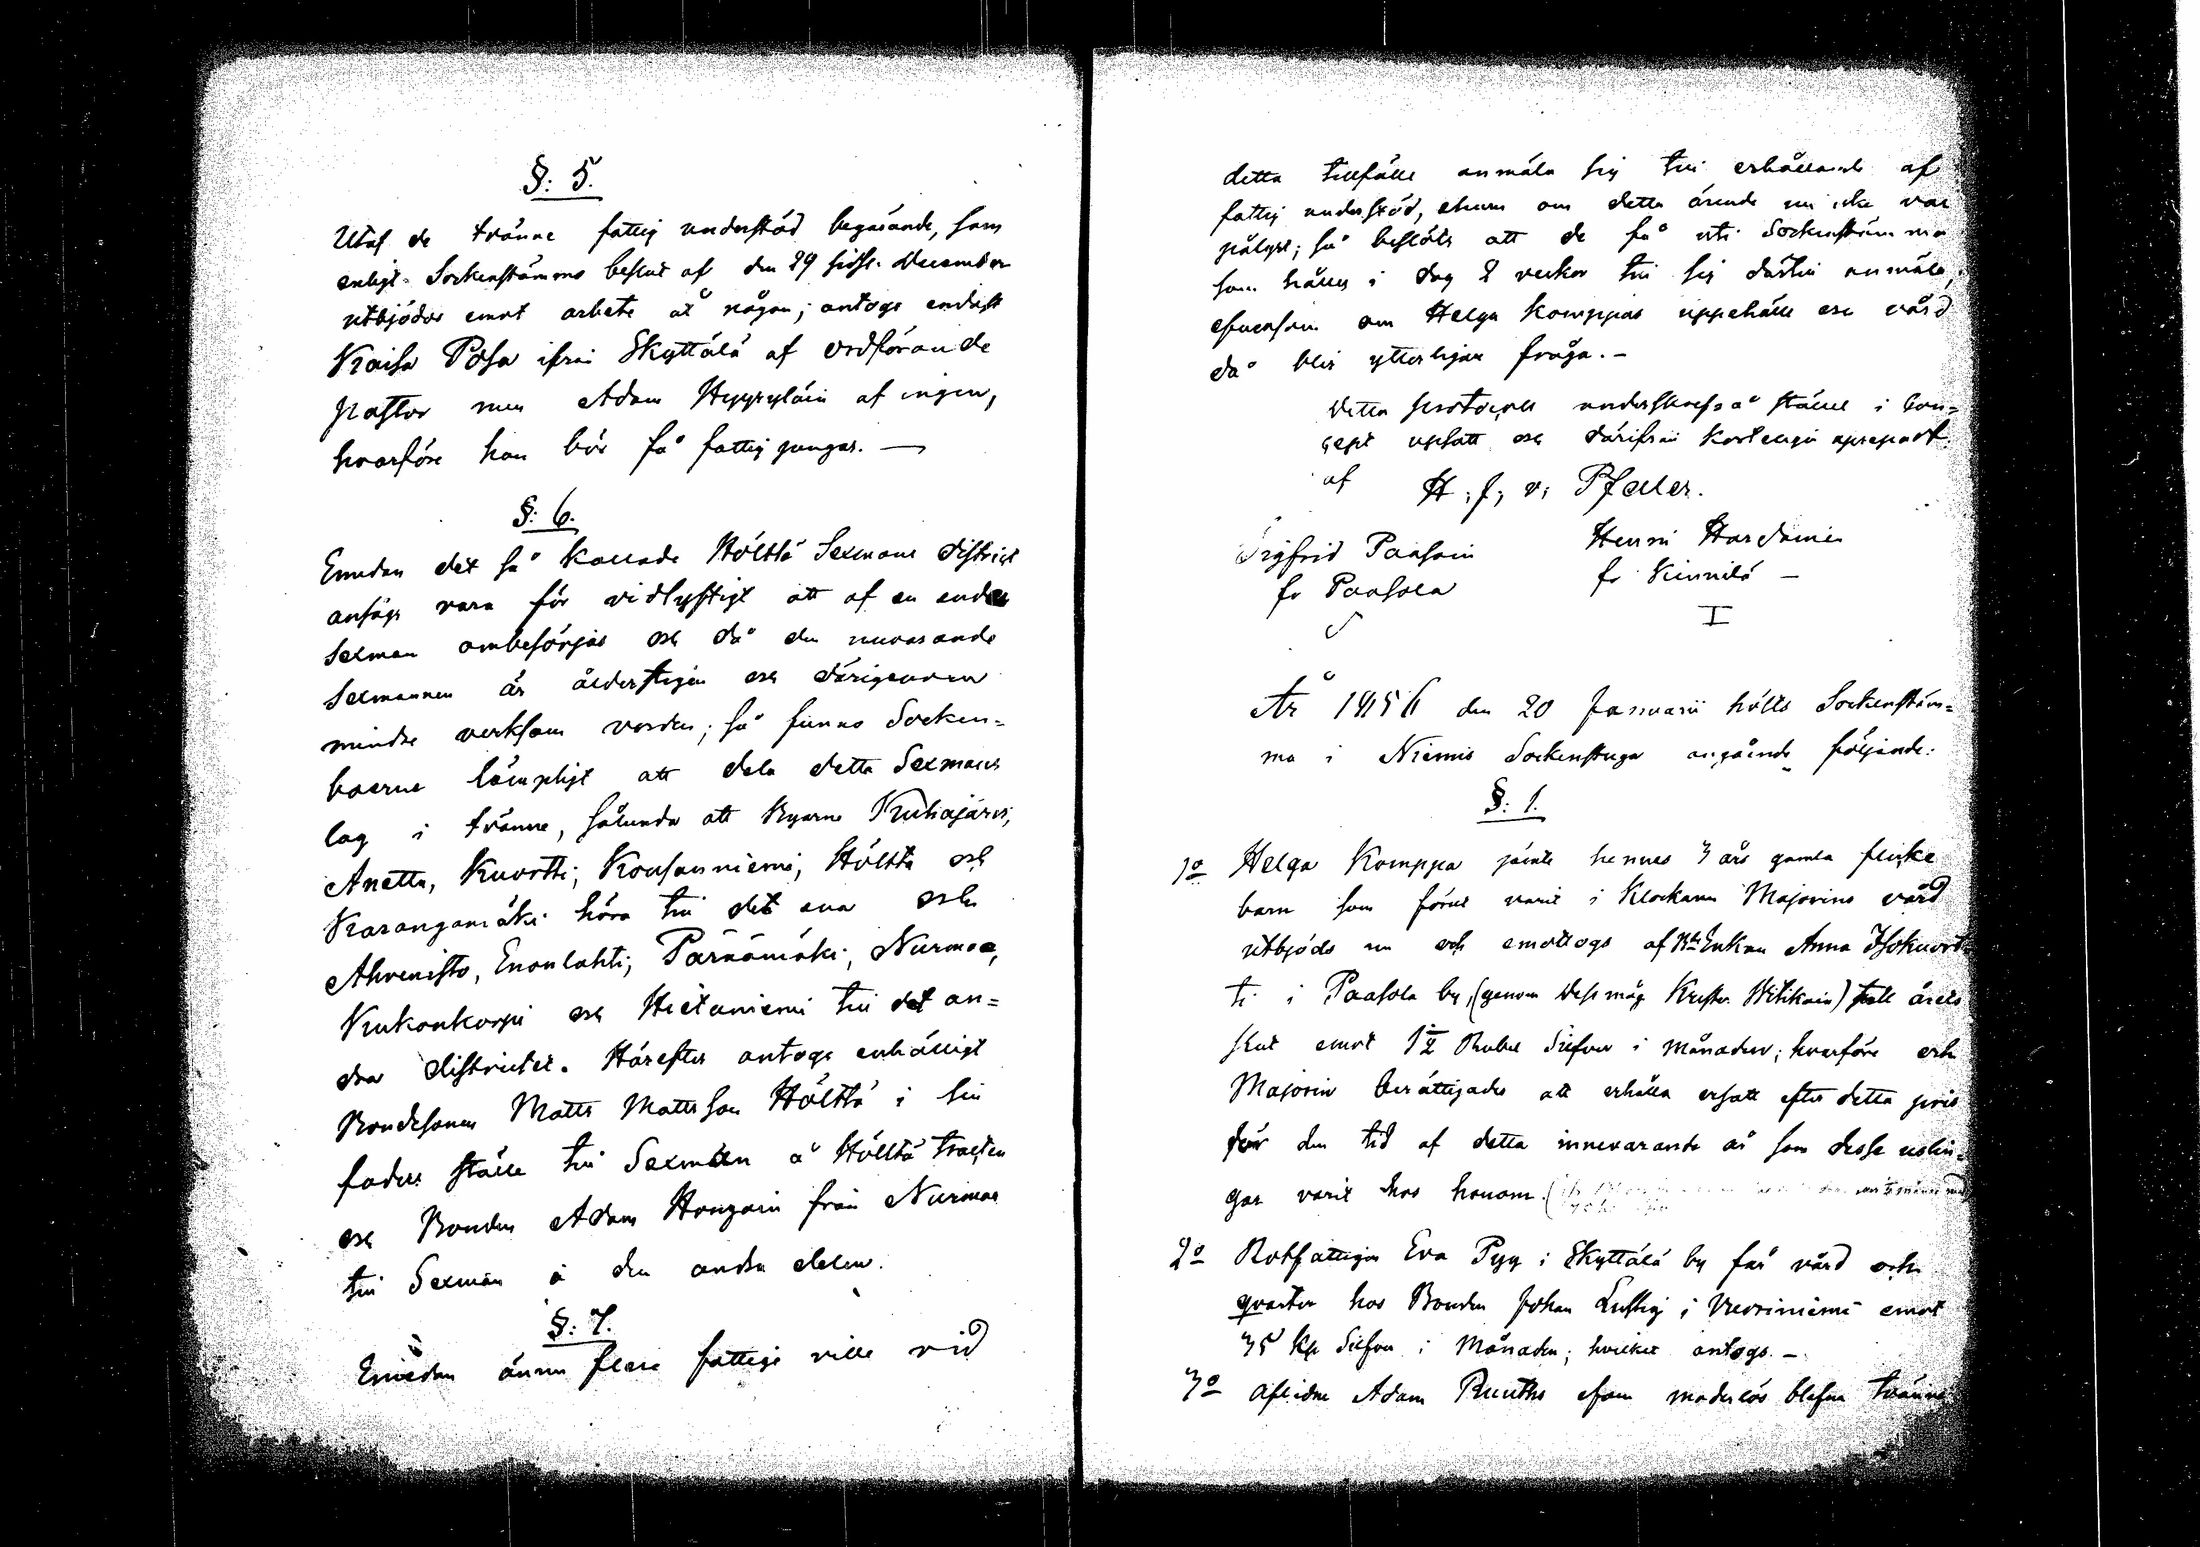 §: 5.
Utaf de tvänne fattig understöd begärande, som
enligt Sockenstämmo beslut af den 29 sistl. December
utbjödos emot arbete åt någon; antogs endast
Kaisa Posa ifrån Skyttälä af ordförande
Pastor men Adam Hyyryläin af ingen,
hvarföre han bör få fattig pengar. —
§: 6.
Emedan det så kallade Hölttä Sexmans district
ansågs vara för vidlyftigt att af en enda
Sexman ombesörjas och då den nuvarande
Sexmannen är ålderstigen och därigenom
mindre verksam vorden; så funno Socken=
boerne lämpligt att dela detta Sexmans
lag i tvänne, sålunda att Byarne Kuhajärvi,
Anetta, Kuortti, Kousanniemi, Hölttä och
Karangamäki höra till det ena och
Ahvenisto, Enonlahti, Pärnämäki, Nurmaa,
Kukonkorpi och Hietaniemi till det an=
dra districtet. Härefter antogs enhälligt
Bondesonen Matts Mattsson Hölttä i sin
faders ställe till Sexman å Hölttä tracten
och Bonden Adam Hongain från Nurmaa
till Sexman å den andra delen.
§: 7.
Emedan ännu flere fattige ville vid
detta tillfälle anmäla sig till erhållande af
fattig understöd, ehuru om detta ärende nu icke var
pålyst; så beslöts att de få uti Sockenstämma
som hålles i dag 2 veckor till sig därtill anmäla,
efvensom om Helga Komppas uppehälle och vård
då blir ytterligare fråga. —
Detta protocoll underskrefs å stället i con=
cept upsatt och därifrån korteligen uprepadt
af H; f; v; Pfaler.
Sigfrid Paasoin Henric Hardoinen
fr Paasola fr Kinnilä —
Är 1856 den 20 Januarii hölts Sockenstäm=
ma i Niemis Sockenstuga angående följande:
§: 1.
1o Helga Komppa jämte hennes 3 års gamla flicke
barn som förut varit i Klockaren Majorins vård
utbjöds nu och emottogs af Enkan Anna Isokuort
ti i Paasola by, (genom dess måg Krister Witikain) till årets
slut emot 1½ Rubel Silfver i månaden; hvarföre och
Majorin berättigades att erhålla ersatt efter detta pris
för den tid af detta innevarande år som desse uslin=
gar varit hos honom.
2o Rotfattiga Eva Pyy i Skyttälä by får vård och
qvarter hos Bonden Johan Lustig i Vuoriniemi emot
35 kp Silfver i Månaden; hvilket antogs. —
3o Aflidne Adam Ruuths efam moderlös blefne tvänne